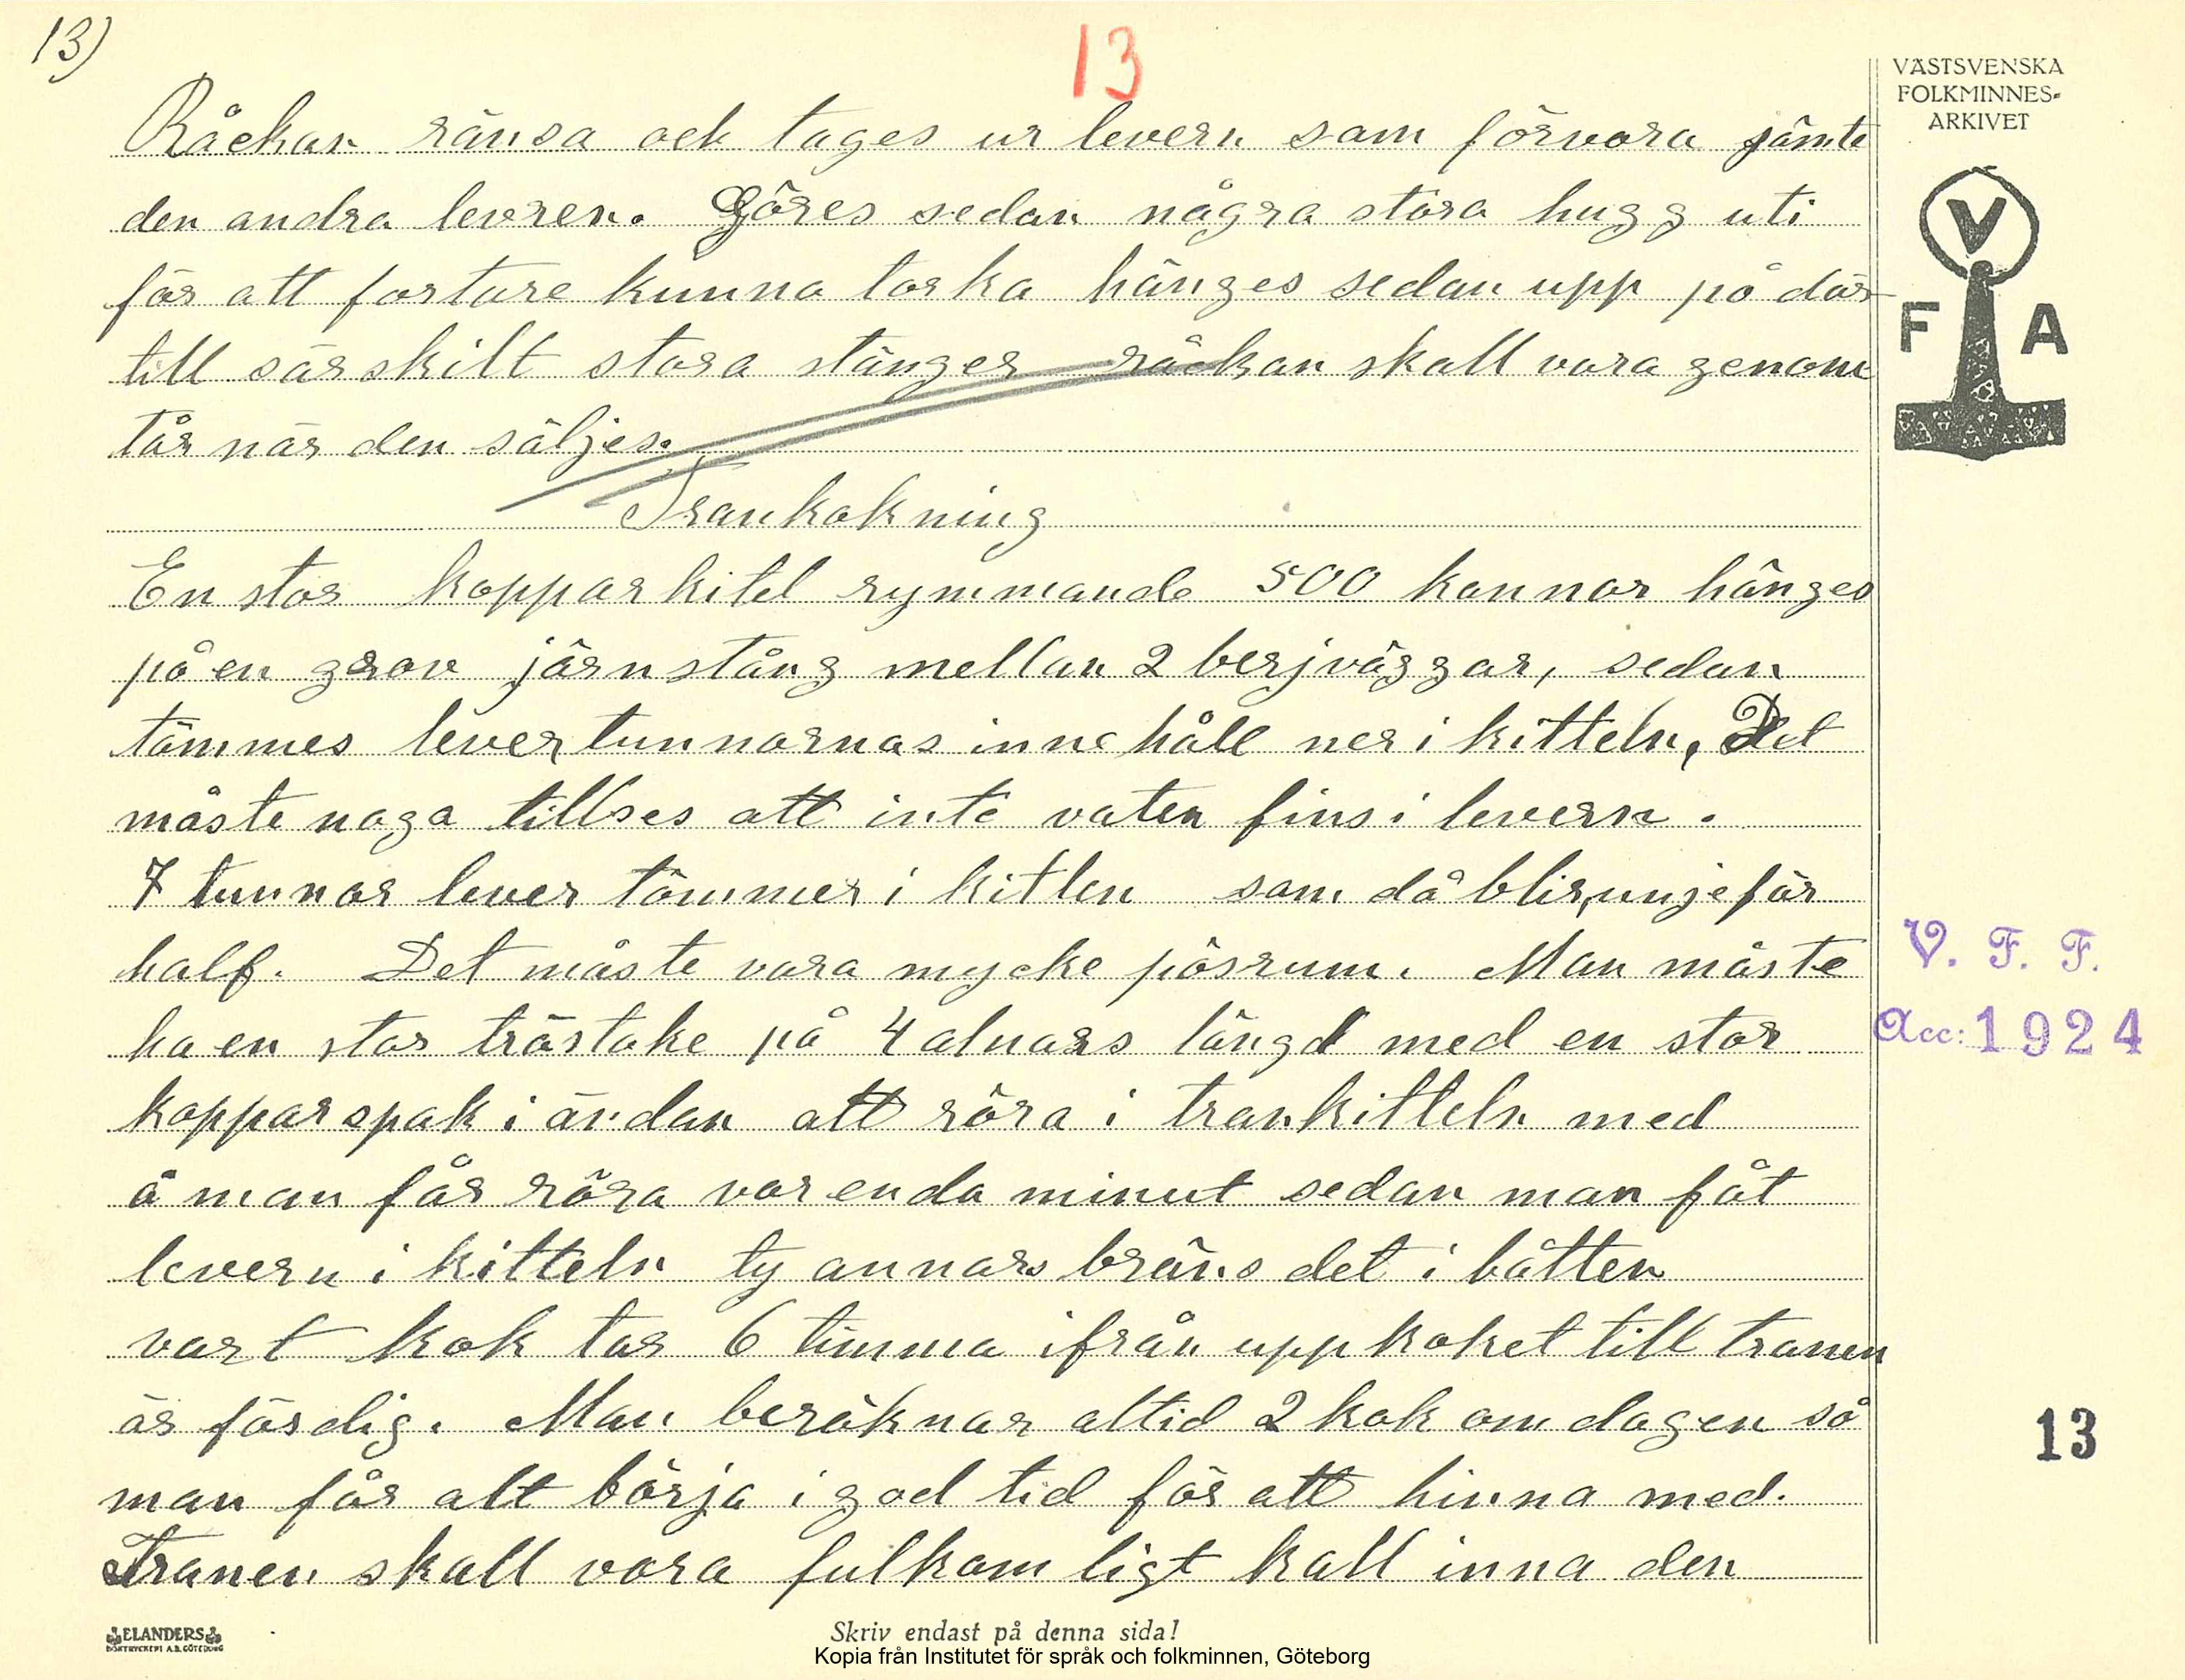 13)
13
VÄSTSVENSKA
FOLKMINNES-
ARKIVET
V
F A
Råckan ränsa ock tages ur levern som förvara jämte
den andra levren. Göres sedan några stora hugg uti
för att fortare kunna torka hänges sedan upp på där
till särskilt stora stänger råckan skall vara genom
tår när den säljes.
Trankokning
En stor kopparkitel rymmande 500 kannor hänges
på en grov järnstång mellan 2 berjväggar, sedan
tömmes levertunnornas innehåll ner i kitteln, Det
måste noga tillses att inte vaten fins i levern.
7 tunnor lever tömmer i kitlen som då blir, unjefär
half. Det måste vara mycke pösrum. Man måste
ha en stor trästake på 4 alnars längd med en stor
kopparspak i ändan att röra i trankitteln med
å man får röra varenda minut sedan man fåt
levern i kitteln ty annars bräns det i båtten
vart kok tar 6 timma ifrån uppkoket till tranen
är färdig. Man beräknar altid 2 kok om dagen så
man får alt börja i god tid för att hinna med.
Tranen skall vara fulkomligt kall inna den
V. F. F.
Acc: 1924
13
ELANDERS
BOKTRYCKERI A.B. GÖTEBORG
Skriv endast på denna sida!
Kopia från Institutet för språk och folkminnen, Göteborg